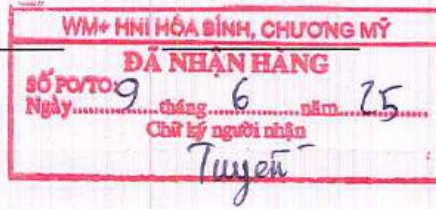 WM+ HNI HÓA BÌNH, CHƯƠNG MỸ
ĐÃ NHẬN HÀNG
SỐ PO/TO:
Ngày 9 tháng 6 năm 25
Chữ ký người nhận
Tuyến